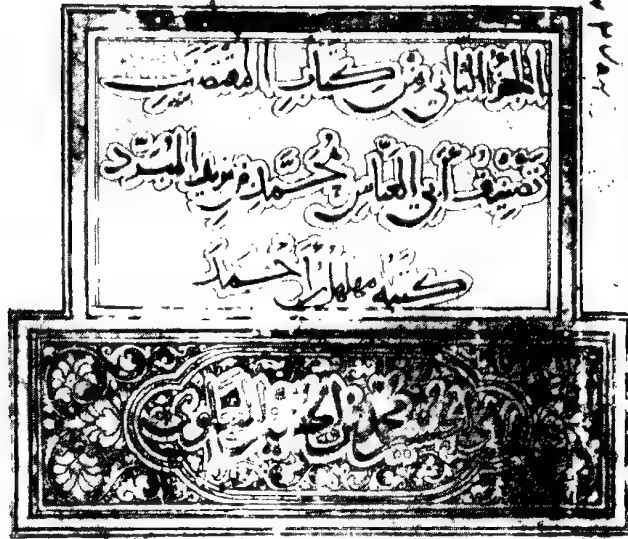 الجزء الثاني من كتاب المقتضب
تصنيف أبي العباس محمد بن يزيد المبرد
كتبه مهلهل بن أحمد
محمد بن الحسين